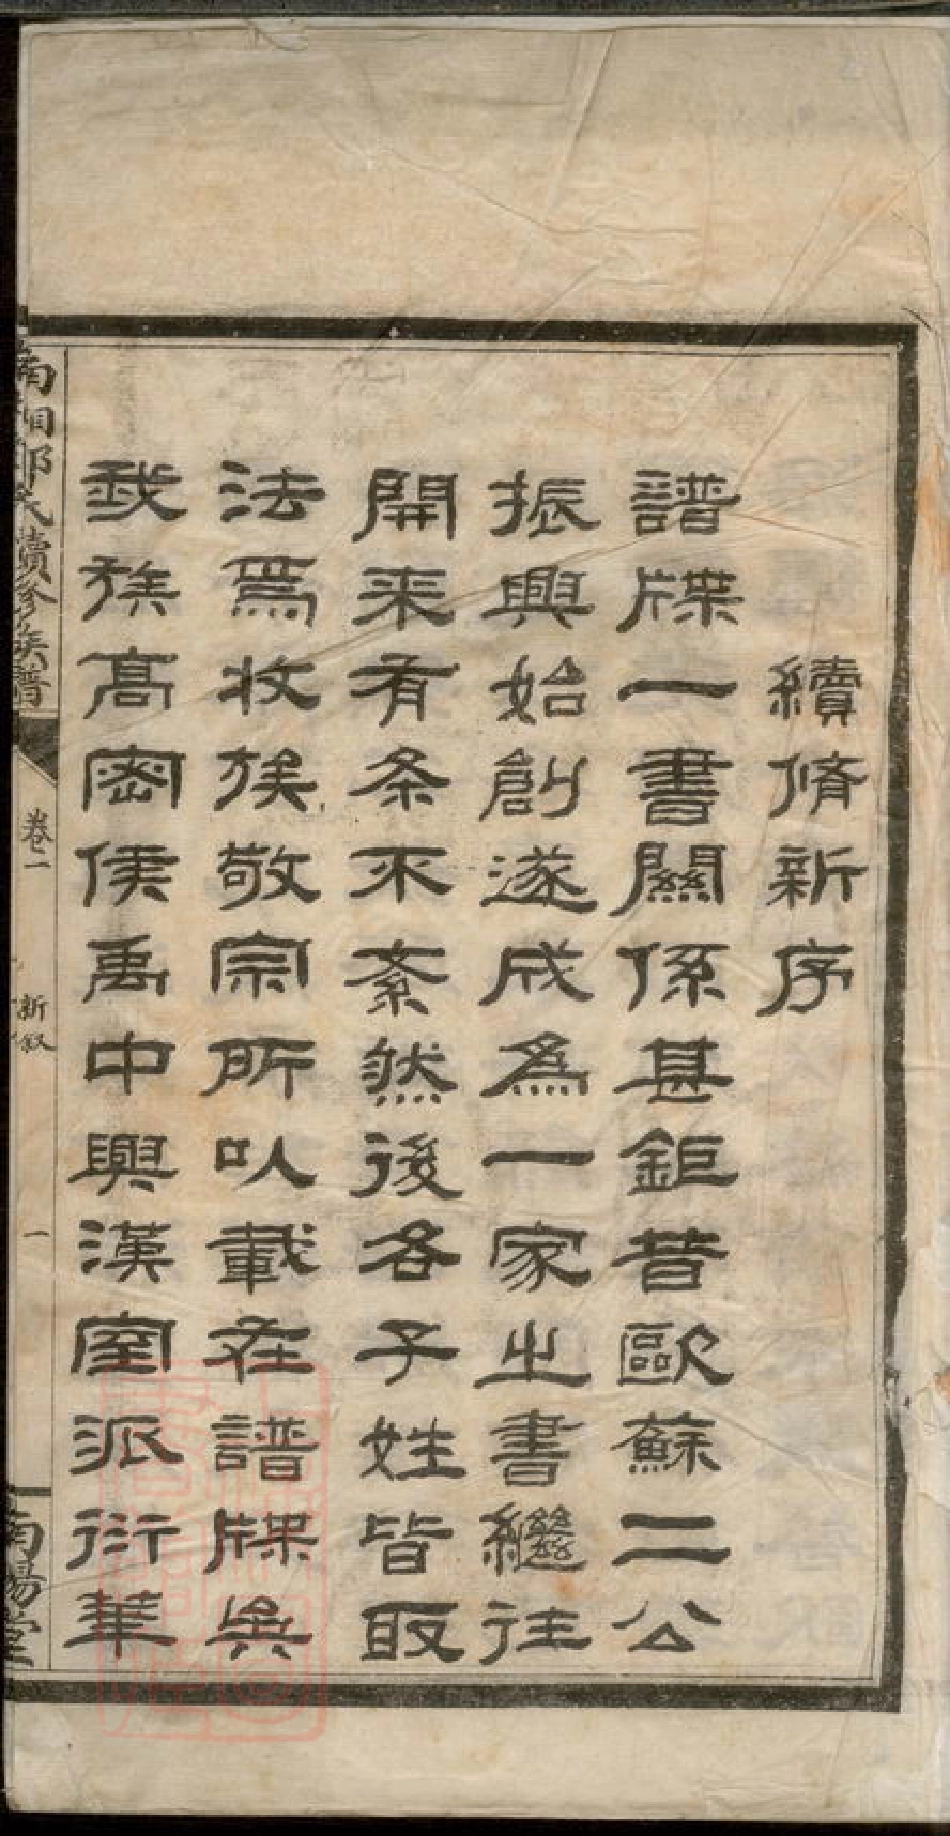 續脩新序
譜牒一書關係甚鉅昔歐蘇二公
振興始創遂成為一家之書繼往
開来有条不紊然後各子姓皆取
法焉收族敬宗所以載在譜牒矣
我族高密侯禹中興漢室派衍華
南湘鄧氏續修族譜
卷一
新叙
一
南陽堂